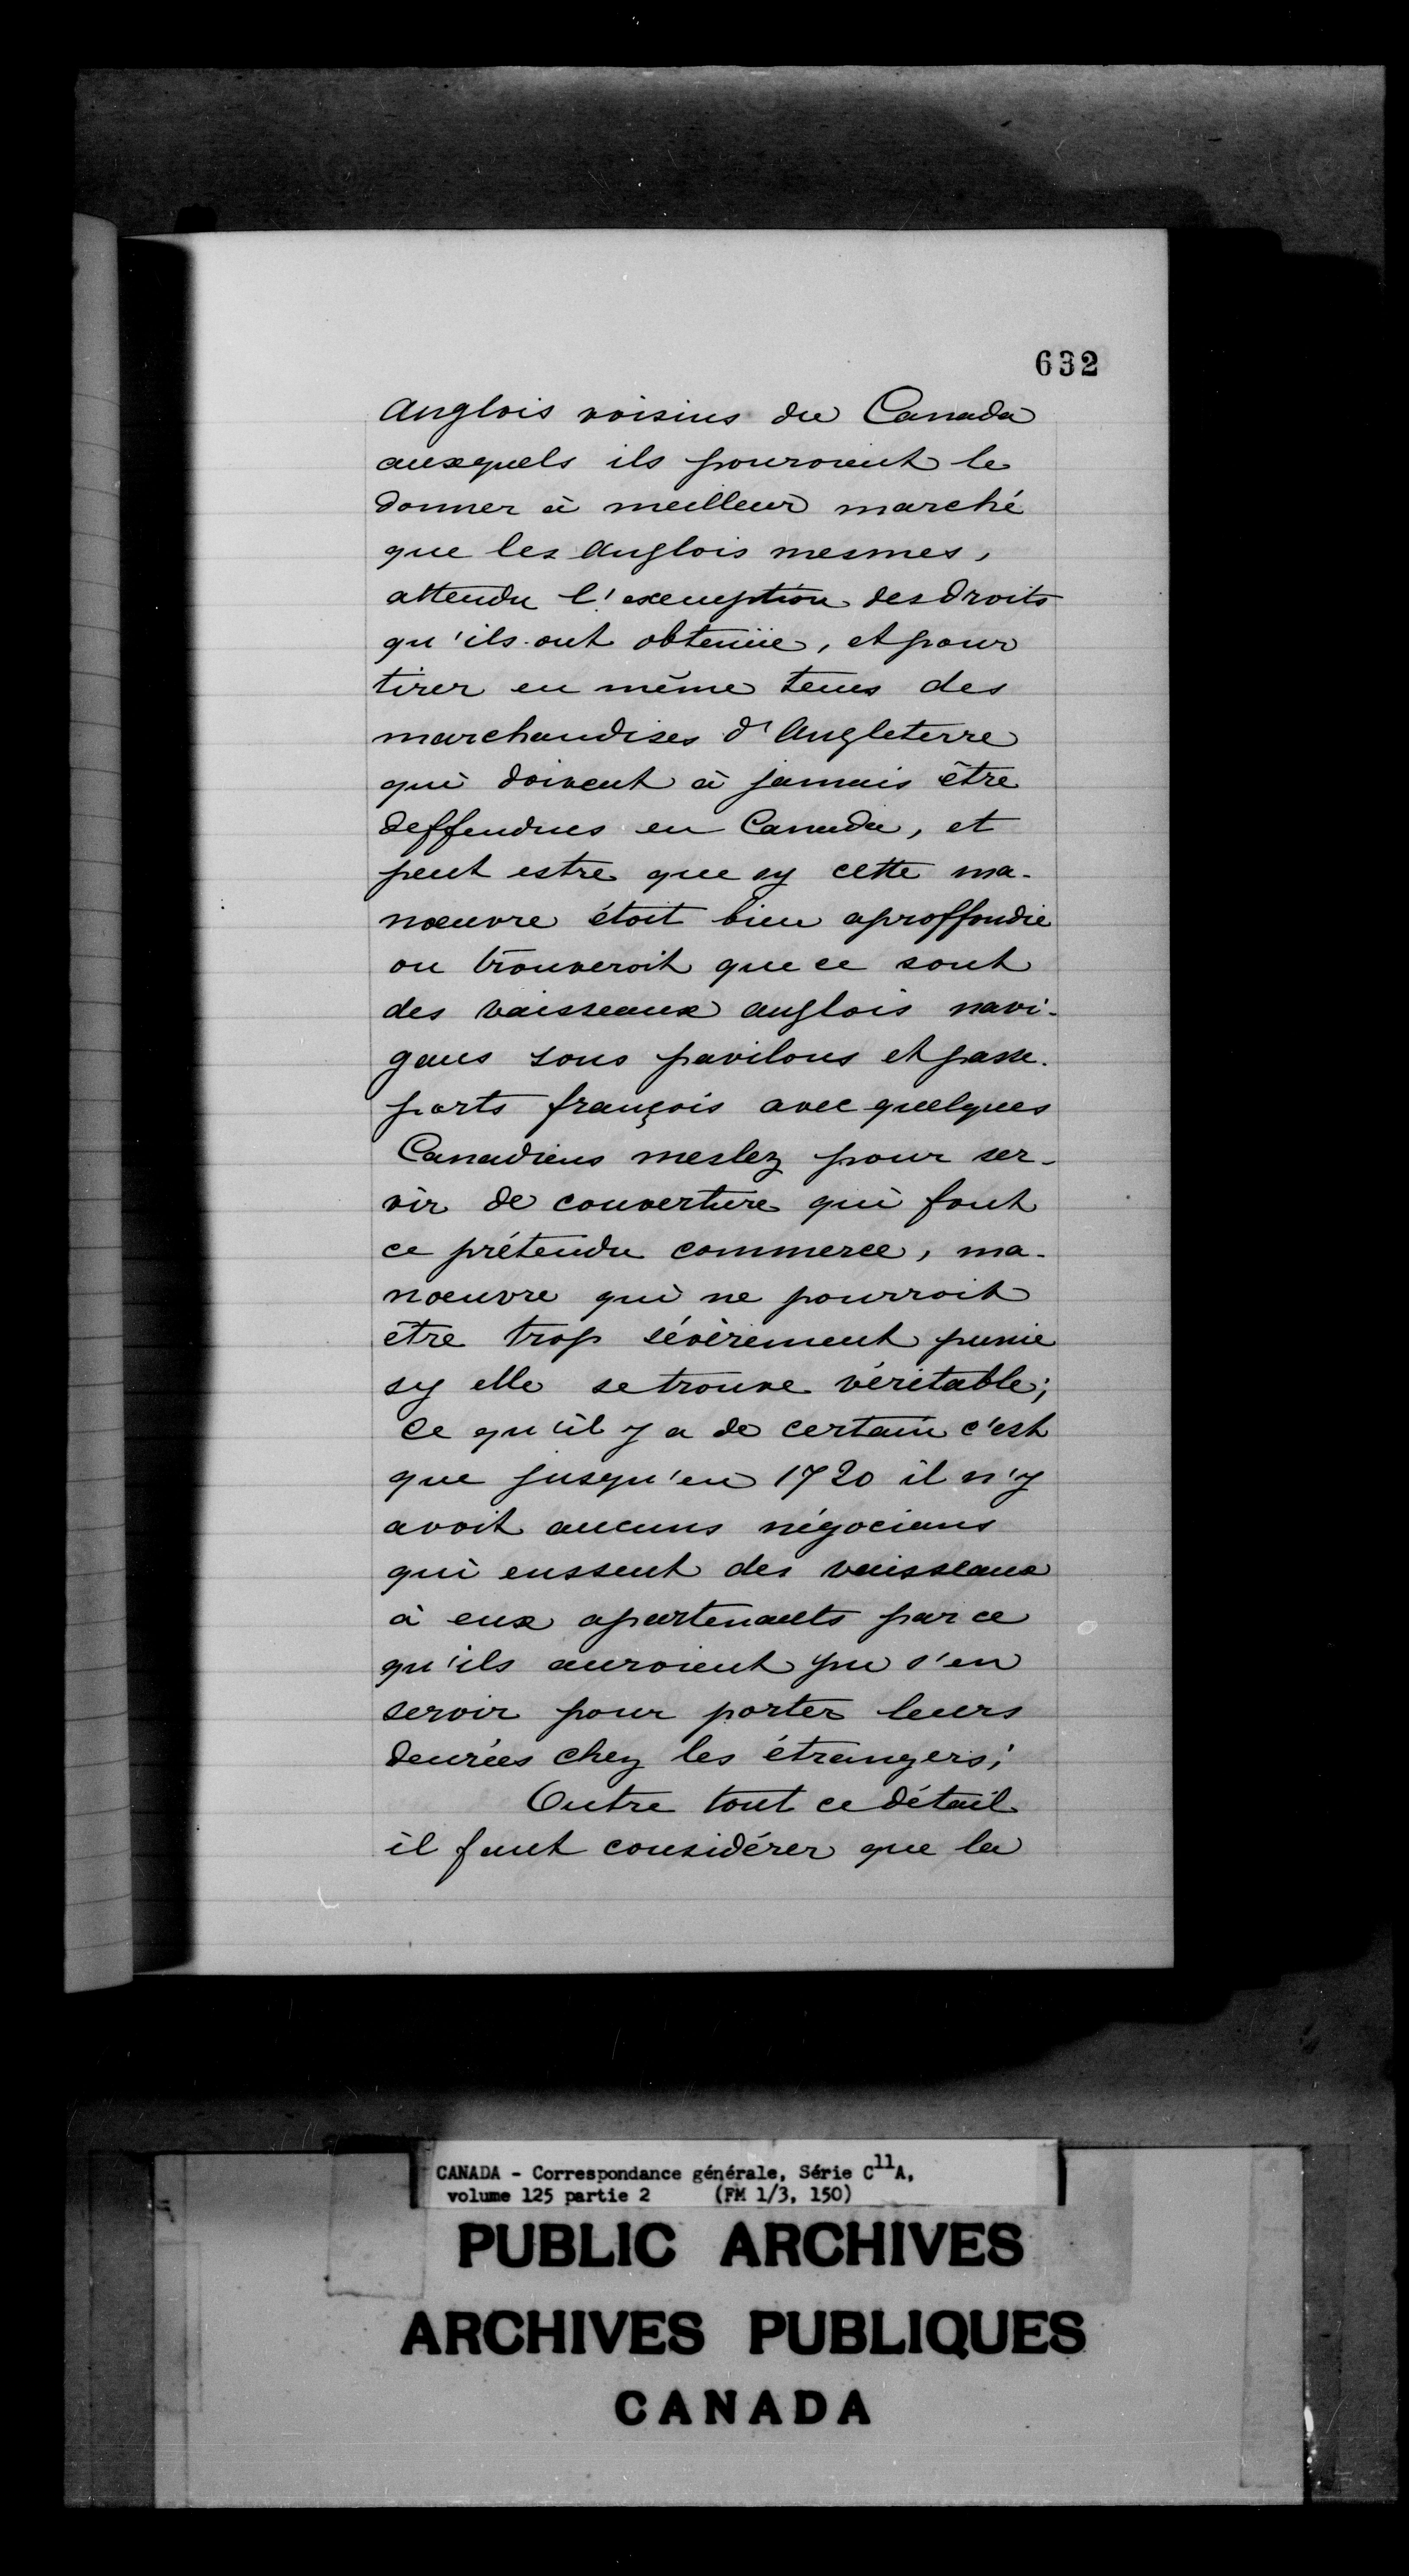 632
Anglois voisins du Canada
auxquels ils pouroient le
donner à meilleur marché
que les Anglois mesmes,
attendu l'exemption des droits
qu'ils ont obtenüe, et pour
tirer en même tems des
marchandises d'Angleterre
qui doivent à jamais être
deffendues en Canada, et
peut estre que sy cette ma-
nœuvre étoit bien aproffondie
on trouveroit que ce sont
des vaisseaux anglois navi-
gans sous pavilons et passe-
ports françois avec quelques
Canadiens meslez pour ser-
vir de couverture qui font
ce prétendu commerce, ma-
nœuvre qui ne pourroit
être trop sévèrement punie
sy elle se trouve véritable;
ce qu'il y a de certain c'est
que jusqu'en 1720 il n'y
avoit aucuns négocians
qui eussent des vaisseaux
à eux apartenants par ce
qu'ils auroient pu s'en
servir pour porter leurs
denrées chez les étrangers;
Outre tout ce détail
il faut considérer que la
CANADA - Correspondance générale, Série C11A,
volume 125 partie 2 (FM 1/3, 150)
PUBLIC ARCHIVES
ARCHIVES PUBLIQUES
CANADA